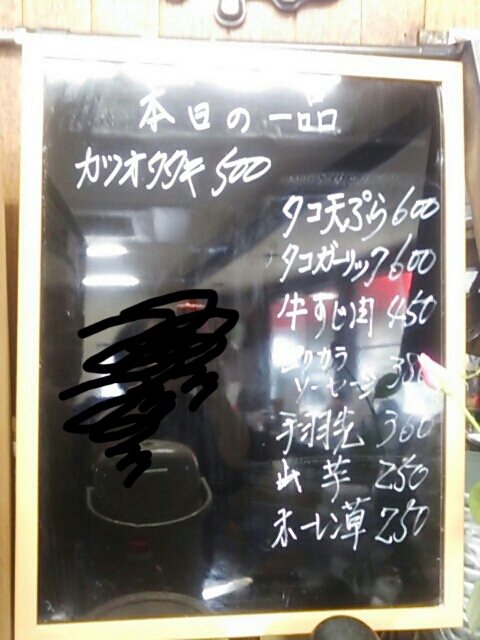 本日の一品
カツオタタキ 500
タコ天ぷら 600
タコガーリック 600
牛すじ肉 450
ピリカラ
ソーセージ
手羽先 360
山芋 250
ホーレン草 250